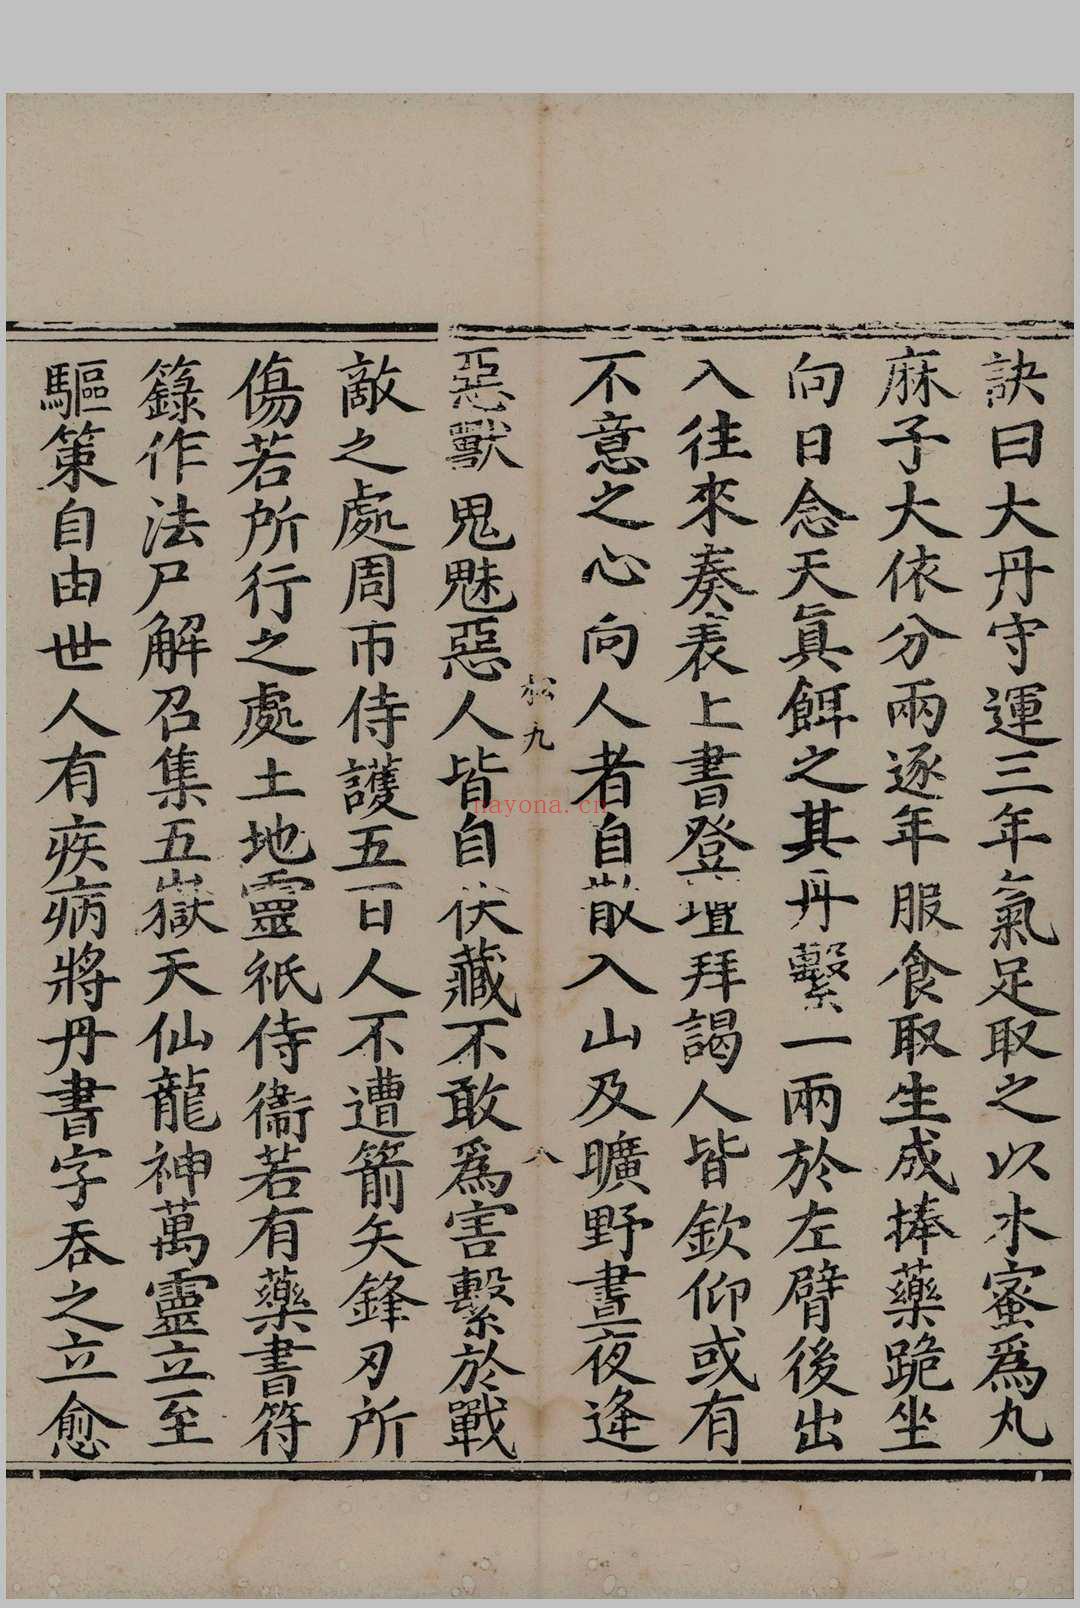 訣曰大丹守運三年氣足取之以水蜜爲丸
麻子大依分兩逐年服食取生成捧藥跪坐
向日念天眞餌之其丹繫一兩於左臂後出
入往來奏表上書登壇拜謁人皆欽仰或有
不意之心向人者自散入山及曠野晝夜逢
松九
八
惡獸鬼魅惡人皆自伏藏不敢爲害繫於戰
敵之處周帀侍護五百人不遭箭矢鋒刃所
傷若所行之處土地靈祇侍衞若有藥書符
籙作法尸解召集五嶽天仙龍神萬靈立至
驅策自由世人有疾病將丹書字吞之立愈
nayona.cn